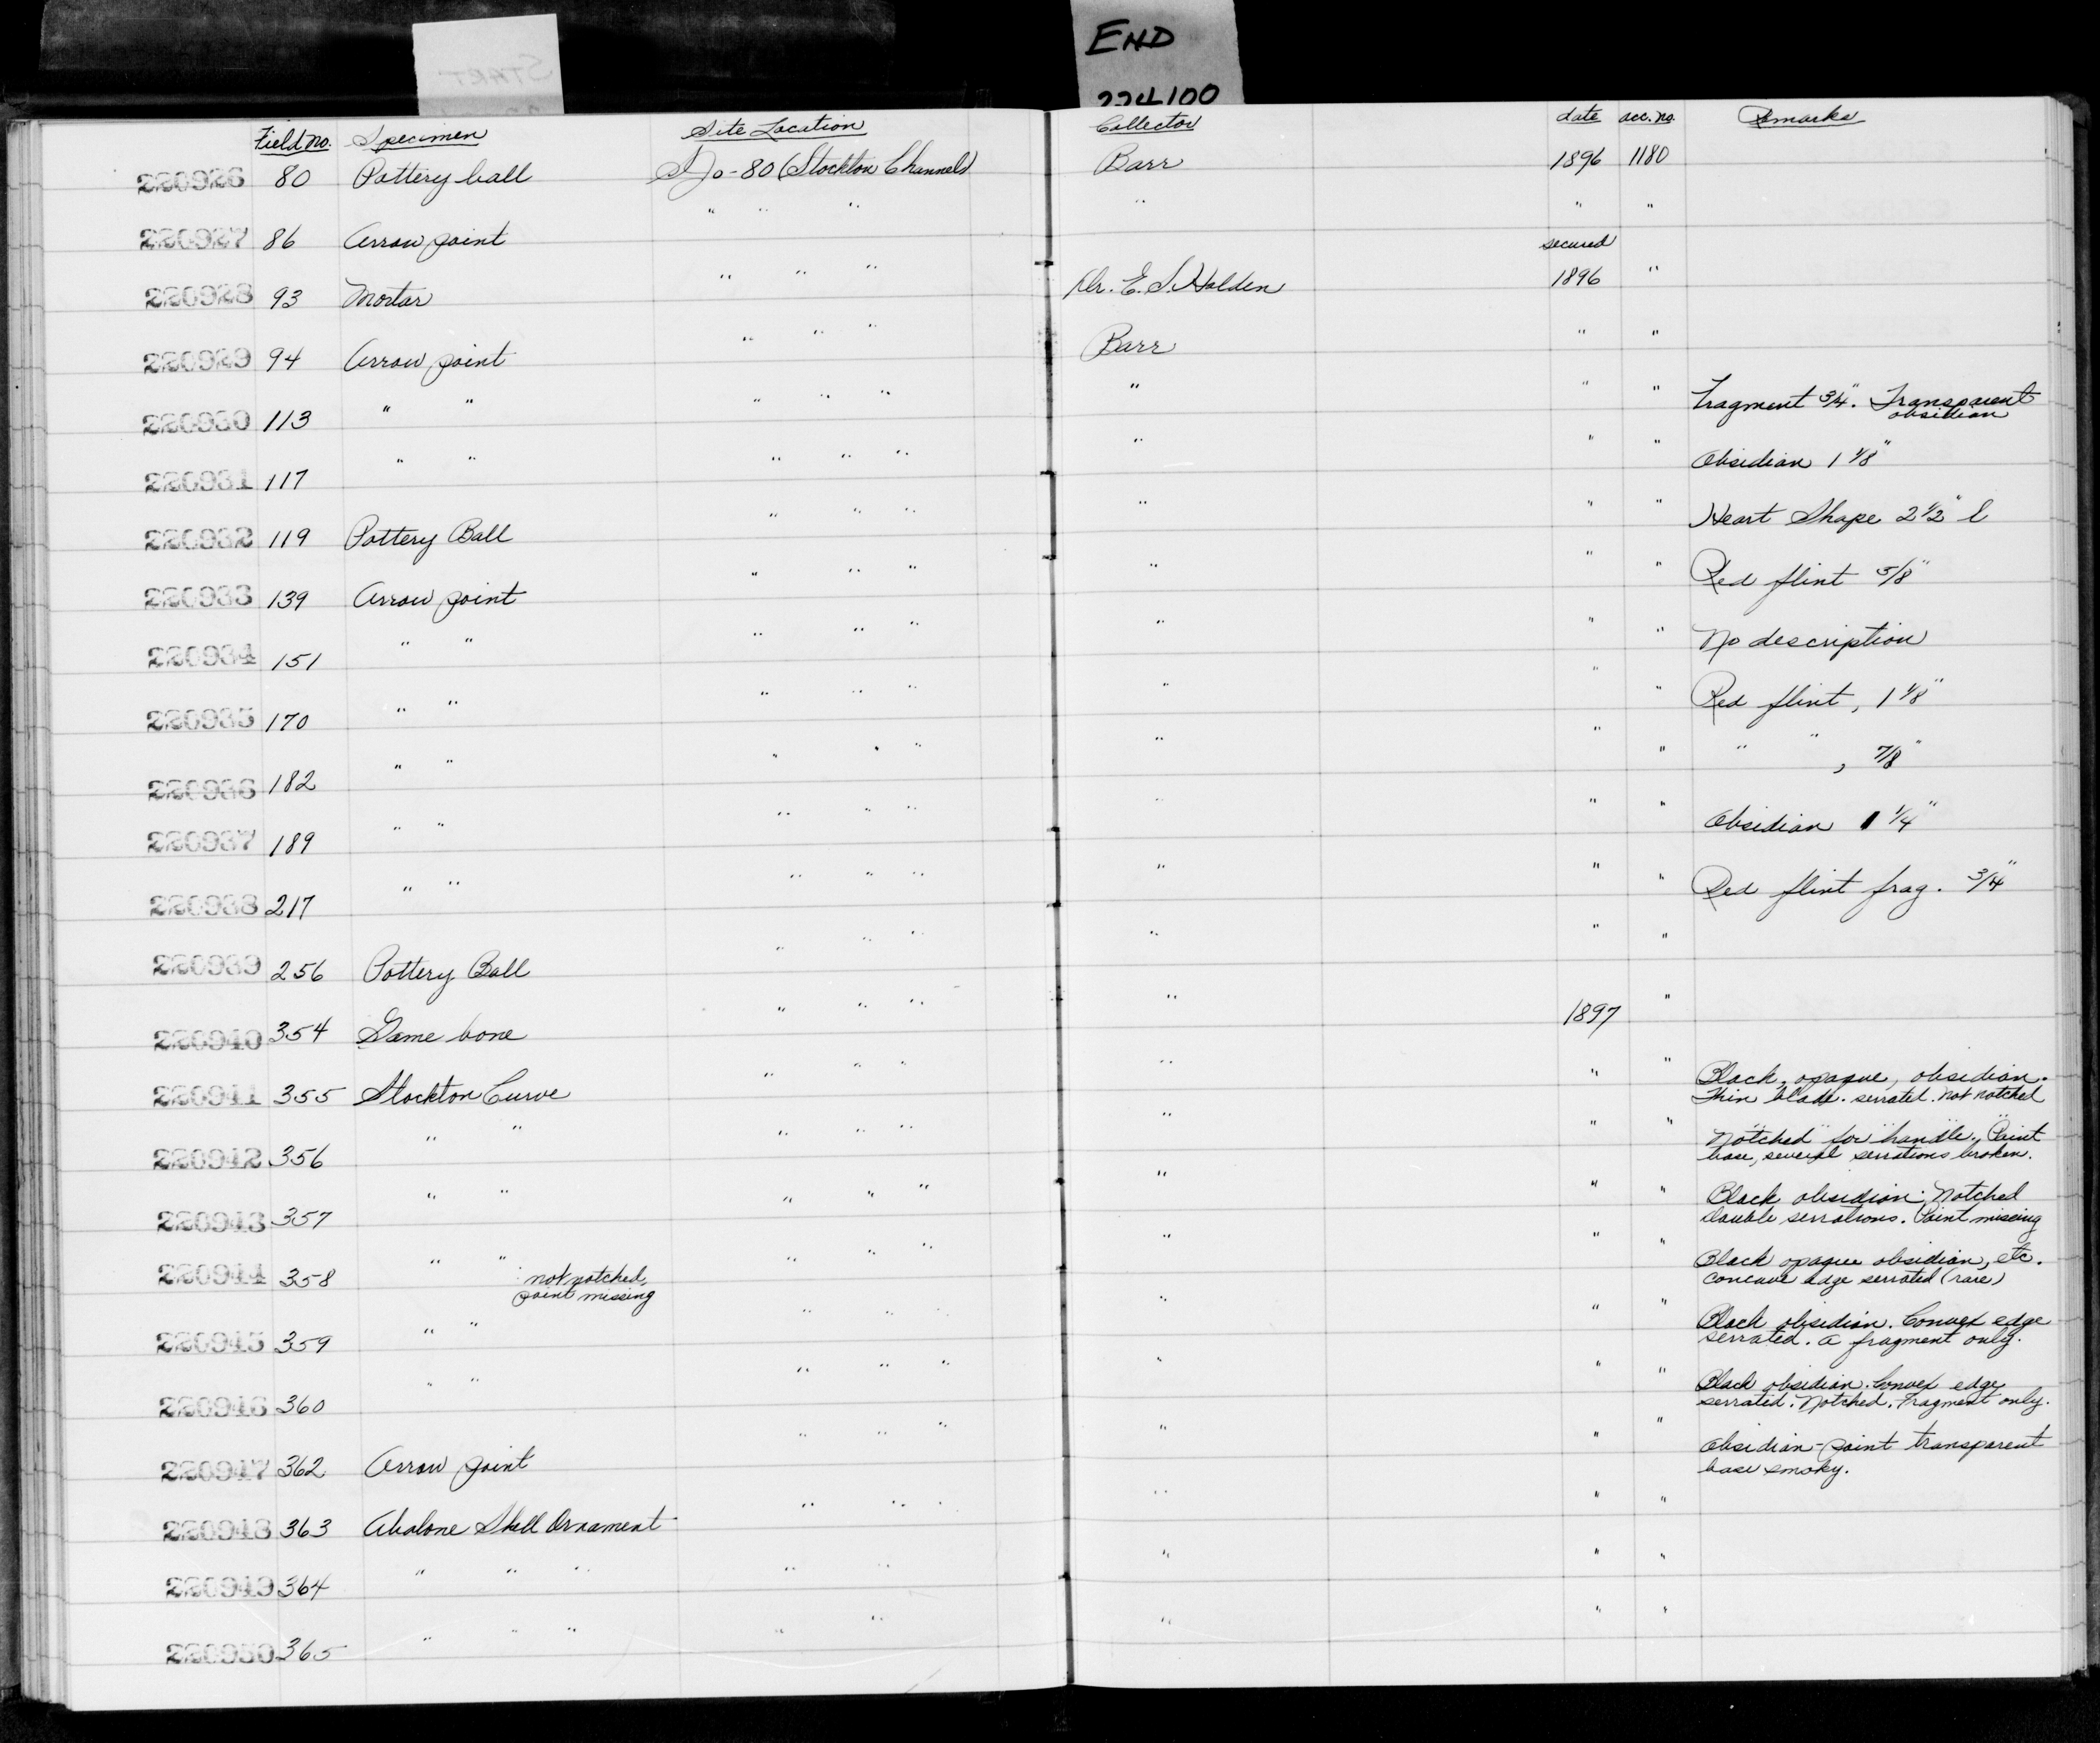 START
END
224100
Field no. Specimen Site Location Collector date acc. no. Remarks
220926 80 Pottery ball SJo-80 (Stockton Channel) Barr 1896 1180
220927 86 Arrow point " " " " " "
220928 93 Mortar " " " Dr. E. S. Holden secured 1896 "
220929 94 Arrow point " " " Barr " "
220930 113 " " " " " " " " Fragment 3/4". Transparent
obsidian
220931 117 " " " " " " " " Obsidian 1 1/8"
220932 119 Pottery Ball " " " " " " Heart Shape 2 1/2" l
220933 139 Arrow point " " " " " " Red flint 5/8"
220934 151 " " " " " " " " No description
220935 170 " " " " " " " " Red flint, 1 1/8"
220936 182 " " " " " " " " " " , 7/8"
220937 189 " " " " " " " " Obsidian 1 1/4"
220938 217 " " " " " " " " Red flint frag. 3/4"
220939 256 Pottery Ball " " " " " "
220940 354 Game bone " " " " 1897 "
220941 355 Stockton Curve " " " " " " Black, opaque, obsidian.
Thin blade. serrated. Not notched
220942 356 " " " " " " " " "Notched" for "handle". Point
base, several serrations broken.
220943 357 " " " " " " " " Black obsidian. Notched
Double serrations. Point missing
220944 358 " " not notched, " " " " " " Black opaque obsidian, etc.
point missing Concave edge serrated (rare)
220945 359 " " " " " " " " Black obsidian. Convex edge
serrated. A fragment only.
220946 360 " " " " " " " " Black obsidian. Convex edge
serrated. Notched. Fragment only.
220947 362 Arrow point " " " " " " Obsidian-point transparent
base smoky.
220948 363 Abalone Shell Ornament " " " " " "
220949 364 " " " " " " " "
220950 365 " " " " " " " "